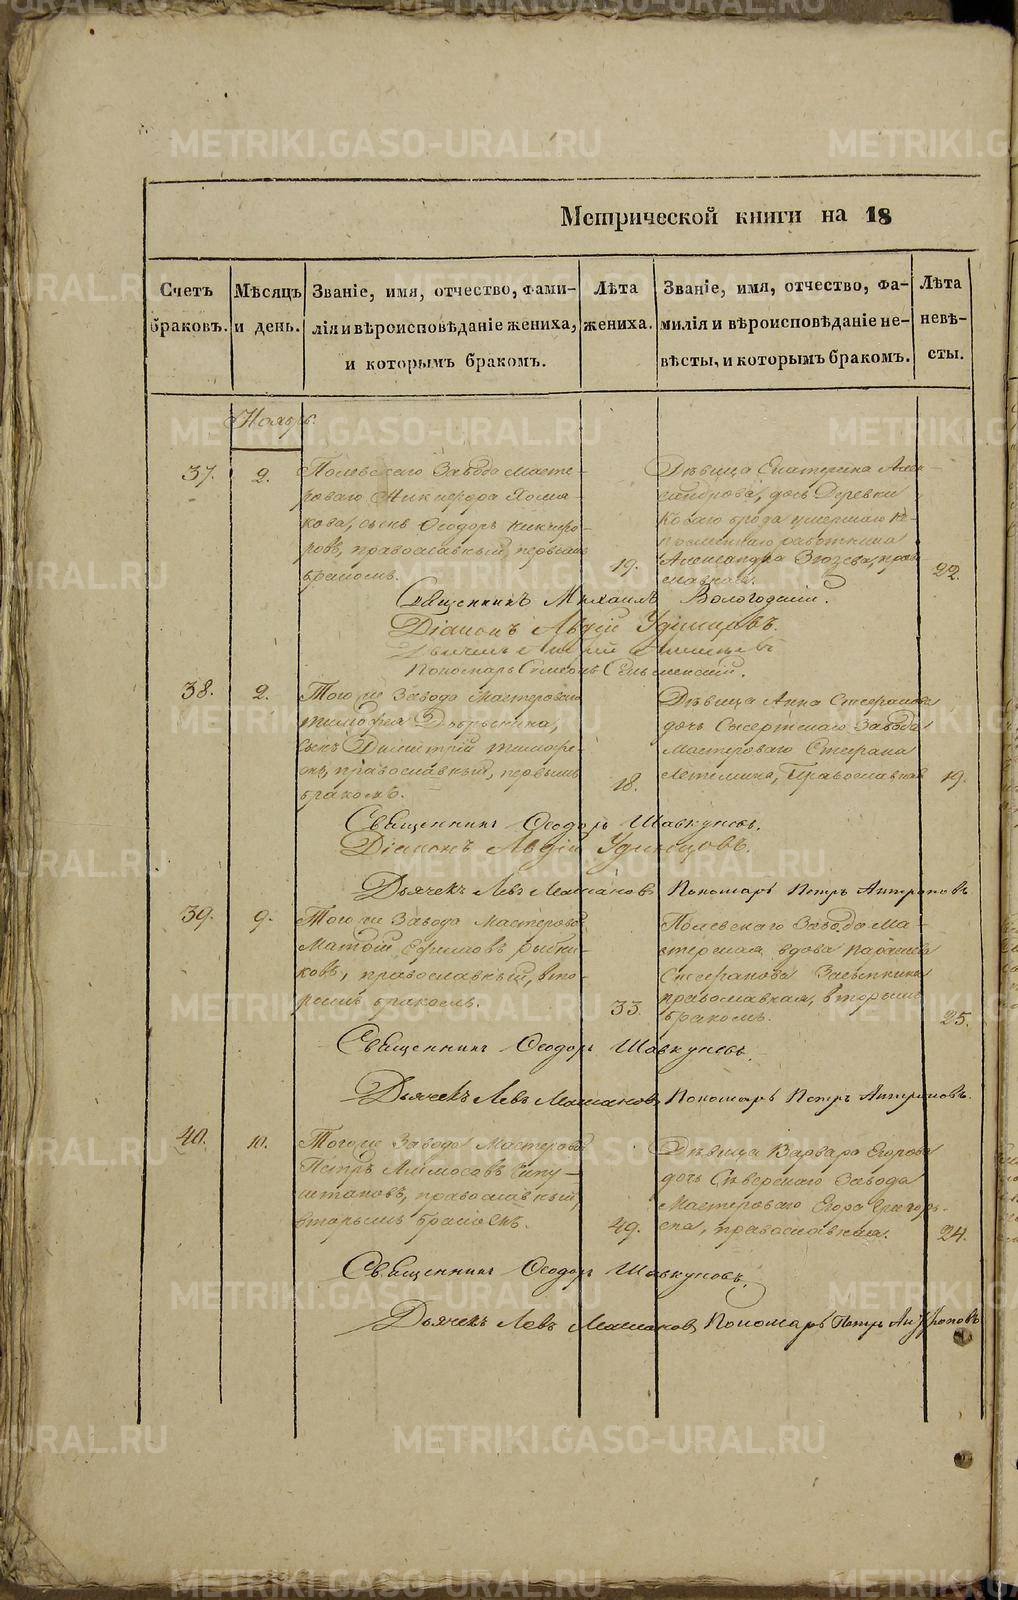 METRIKI.GASO-URAL.RU
Метрической книги на 18
Счетъ браковъ.
Мѣсяцъ и день.
Званіе, имя, отчество, фами-
лія и вѣроисповѣданіе жениха,
и которымъ бракомъ.
Лѣта жениха.
Званіе, имя, отчество, фа-
милія и вѣроисповѣданіе не-
вѣсты, и которымъ бракомъ.
Лѣта невѣ-
сты.
Ноябрь.
37.
2.
Полевскаго Завода масте-
роваго Никифора Хомя-
кова, сынъ Ѳеодоръ Никифо-
ровъ, православный, первымъ
бракомъ.
19.
Дѣвица Екатерина Алек-
сандрова, дочь Деревни
Косаго брода умершаго не-
работника
Александра православная.
22.
Священникъ Михаилъ Вологодскій.
Діаконъ Авдій Удинцовъ.
Пономарь Симеонъ
38.
2.
Того же Завода Мастероваго
Тимофея Добрынина,
сынъ Димитрій Тимофе-
евъ, православный, первымъ
бракомъ.
18.
Дѣвица Анна Стефанова
дочь Сысертскаго Завода
Мастероваго Стефана
Летемина, Православная
19.
Священникъ Ѳеодоръ Шавкуновъ.
Діаконъ Авдій Удинцовъ.
Дьячекъ Левъ Пономарь Петръ Антроповъ
39.
9.
Того же Завода Мастеровой
Матѳей Ефимовъ Рыбни-
ковъ, православный, вто-
рымъ бракомъ.
33.
Полевскаго Завода Ма-
стерская вдова Параскева
Стефанова Засыпкина
православная, вторымъ
бракомъ.
25.
Священникъ Ѳеодоръ Шавкуновъ.
Дьячекъ Левъ Пономарь Петръ Антроповъ.
40.
10.
Того же Завода Мастеровой
Петръ
православный,
вторымъ бракомъ.
49.
Дѣвица Варвара Егорова
дочь Сѣверскаго Завода
Мастероваго Егора Григорь-
ева, православная.
24.
Священникъ Ѳеодоръ Шавкуновъ.
Дьячекъ Левъ Пономарь Петръ Антроповъ